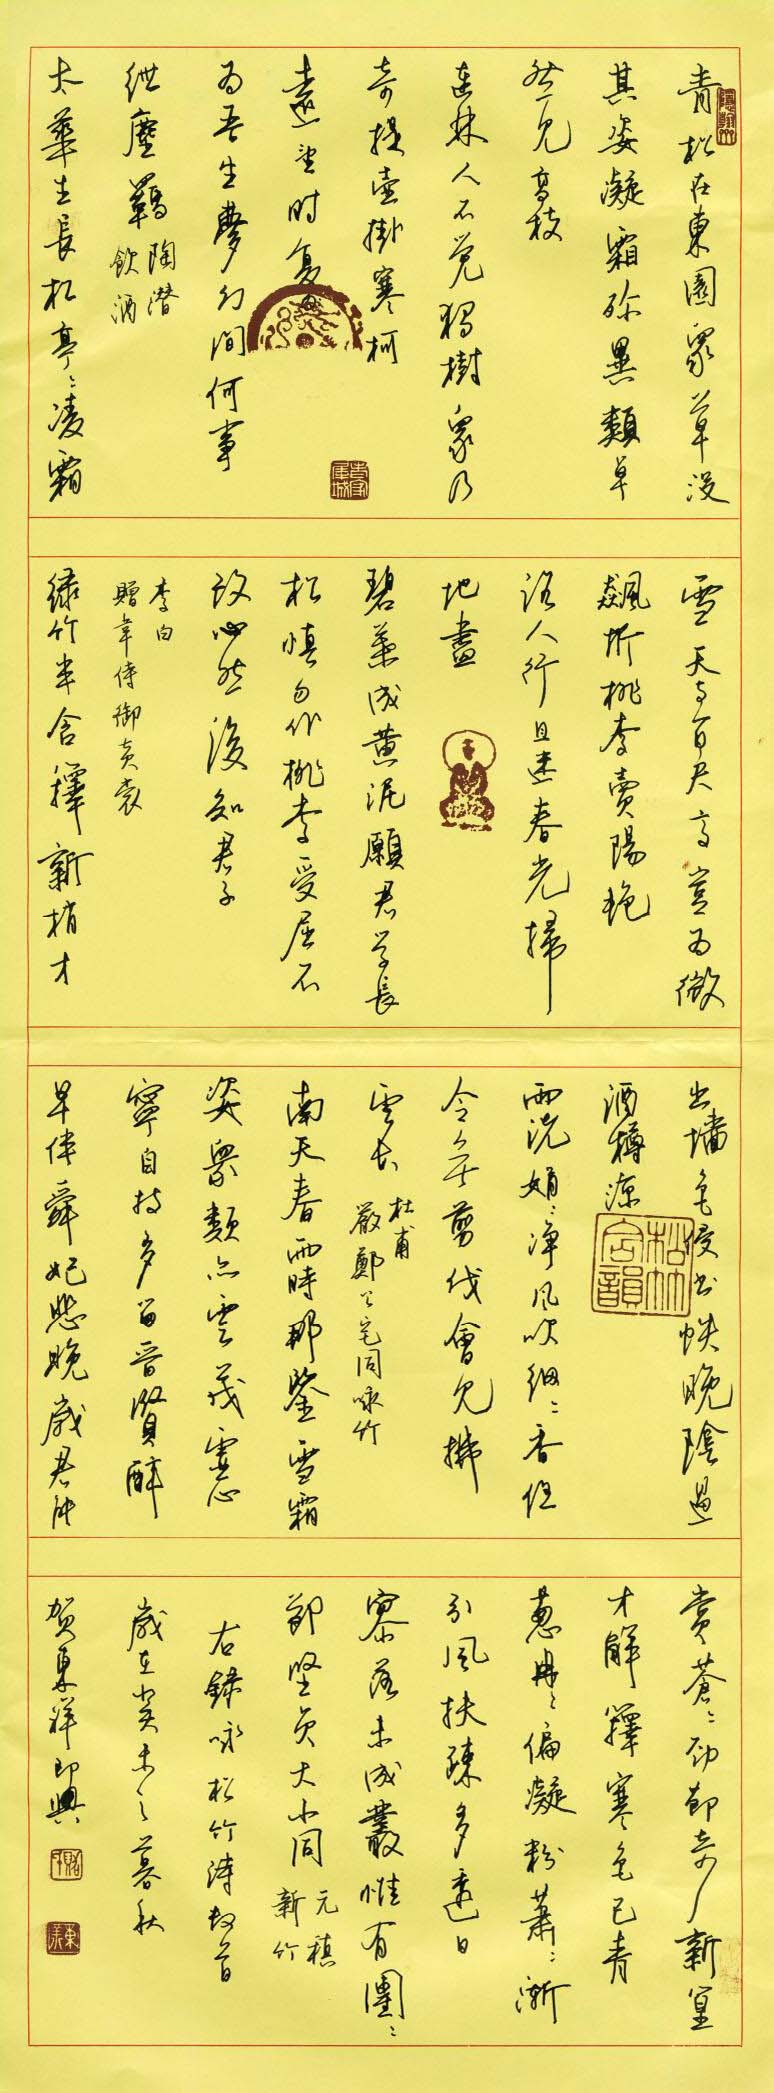 青松在東園衆草没
其姿凝霜殄異類卓
然見高枝
連林人不覺獨樹衆乃
奇提壺掛寒柯
遠望時復為
為吾生夢幻間何事
紲塵羈 陶潜 飲酒
太華生長松亭〻凌霜
雪天與百尺高豈為微
飆折桃李賣陽艷
路人行且迷春光掃
地盡
碧葉成黄泥願君學長
松慎勿作桃李受屈不
改心然後知君子
李白 贈韋侍御黄裳
緑竹半含籜新梢才
出墻色侵書帙晚陰過
酒樽凉
雨洗娟〻净風吹細〻香但
令無剪伐會見拂
雲長 杜甫 嚴鄭公宅同咏竹
南天春雨時那鑒雪霜
姿衆類亦雲茂虚心
寧自持多留晋賢醉
早伴舜妃悲晚歲君能
賞蒼〻勁節奇 新篁
才解籜寒色已青
葱冉〻偏凝粉蕭〻漸
引風扶疎多透日
寥落未成叢惟有團〻
節堅貞大小同 元稹 新竹
右録咏松竹詩数首
歲在癸未之暮秋
賀東祥即興
松竹言韻